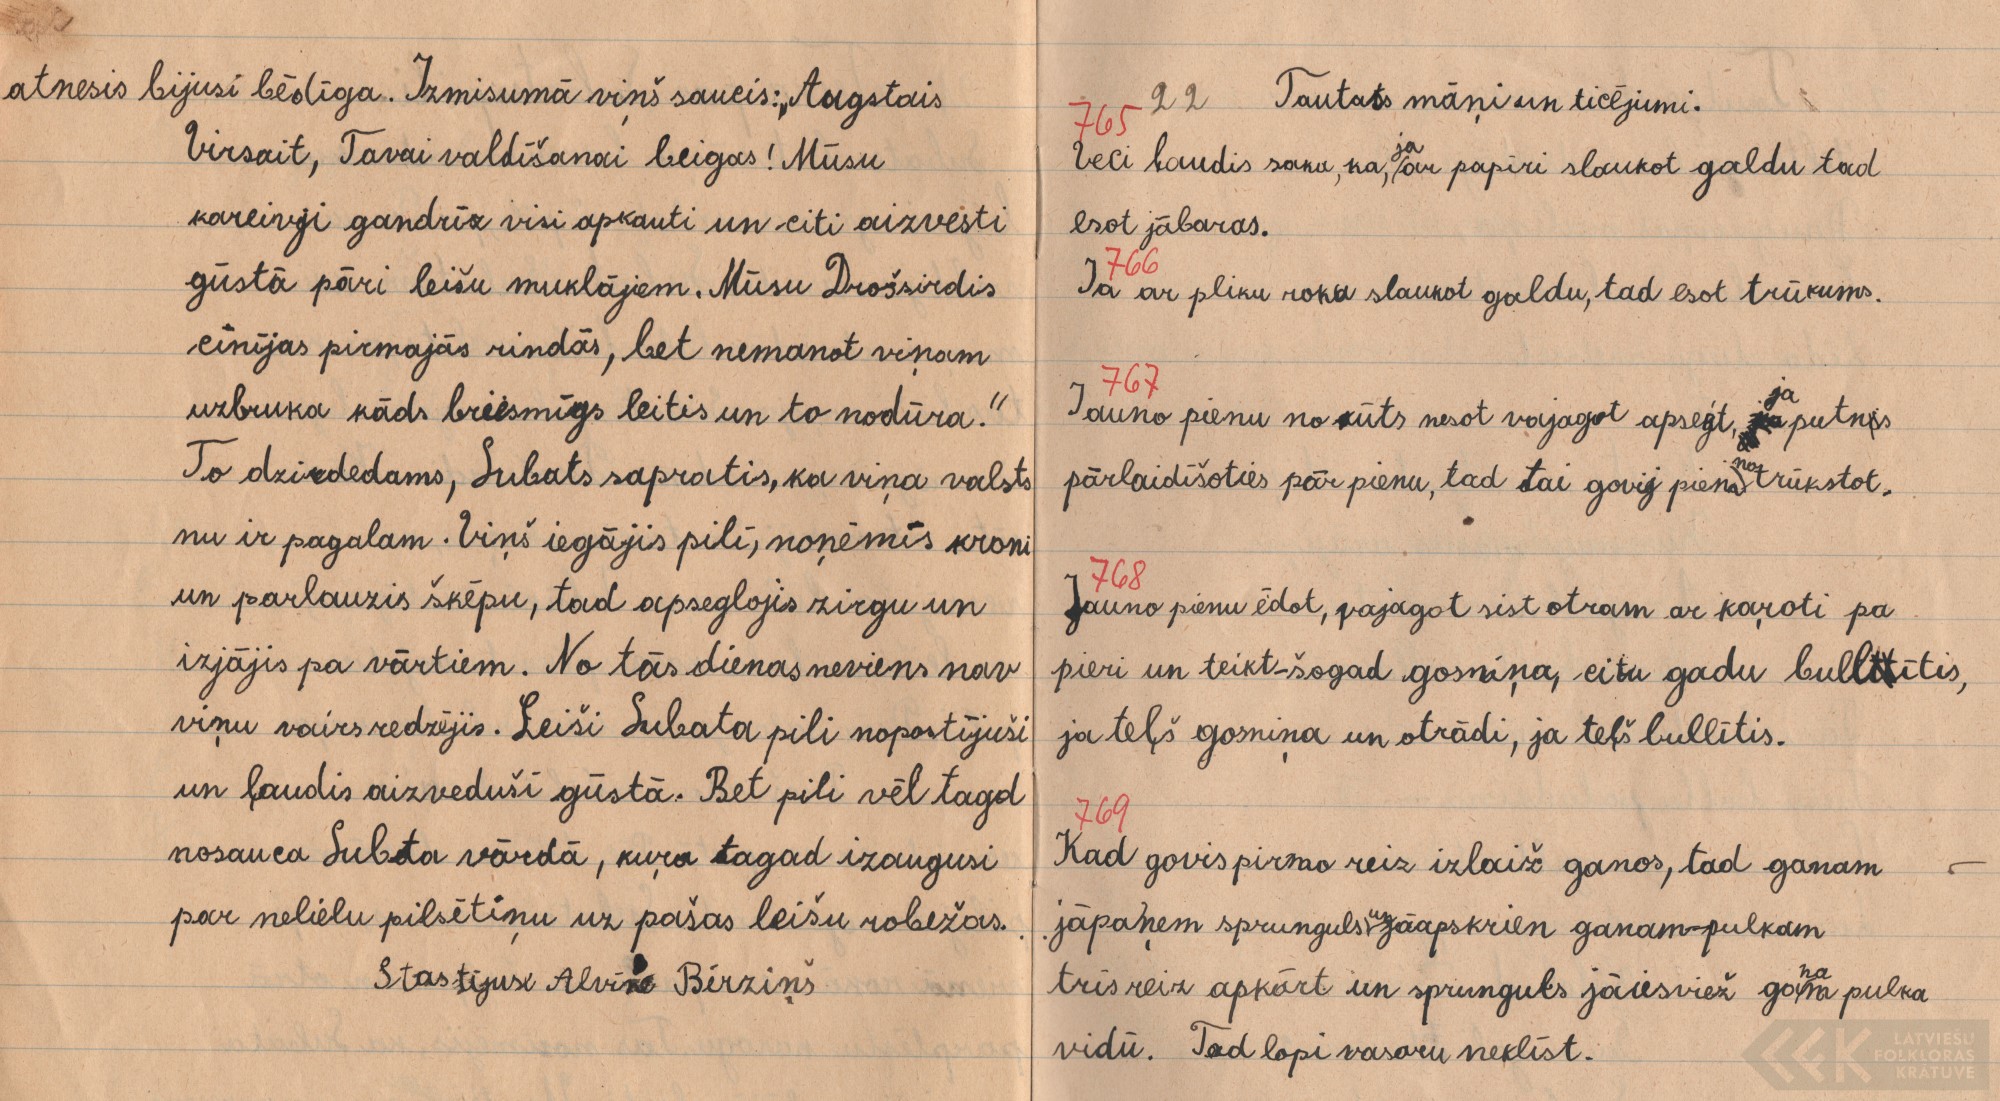 atnesis bijusi bēdīga. Izmisumā viņš saucis: „Augstais
Virsait, Tavai valdīšanai beigas! Mūsu
kareivji gandrīz visi apkauti un citi aizvesti
gūstā pāri leišu muklājiem. Mūsu Drošsirdis
cīnījas pirmajās rindās, bet nemanot viņam
uzbruka kāds briesmīgs leitis un to nodūra."
To dzirdedams, Subats sapratis, ka viņa valsts
nu ir pagalam. Viņš iegājis pilī, noņēmis kroni
un parlauzis šķēpu, tad apseglojis zirgu un
izjājis pa vārtiem. No tās dienas neviens nav
viņu vairs redzējis. Leiši Subata pili nopostījuši
un ļaudis aizveduši gūstā. Bet pili vēl tagad
nosauca Subata vārdā, kuŗa tagad izaugusi
par nelielu pilsētiņu uz pašas leišu robežas.
Stastījuse Alvine Bērziņš
22 Tautas māņi un ticējumi.
765
Veci ļaudis saka, ka, ja ar papiri slaukot galdu tad
esot jābaras.
766
Ja ar pliku roku slaukot galdu, tad esot trūkums.
767
Jauno pienu no kūts nesot vajagot apsegt, ja putns
pārlaidīšoties pār pienu, tad tai govij piena trūkstot.
768
Jauno pienu ēdot, vajagot sist otram ar kaŗoti pa
pieri un teikt-šogad gosniņa, citu gadu bullītis,
ja teļš gosniņa un otrādi, ja teļš bullītis.
769
Kad govis pirmo reiz izlaiž ganos, tad ganam
jāpaņem sprunguls un jāapskrien ganam-pulkam
trīs reiz apkārt un sprunguls jāiesviež gana pulka
vidū. Tad lopi vasaru neklīst.
LATVIEŠU
FOLKLORAS
KRĀTUVE